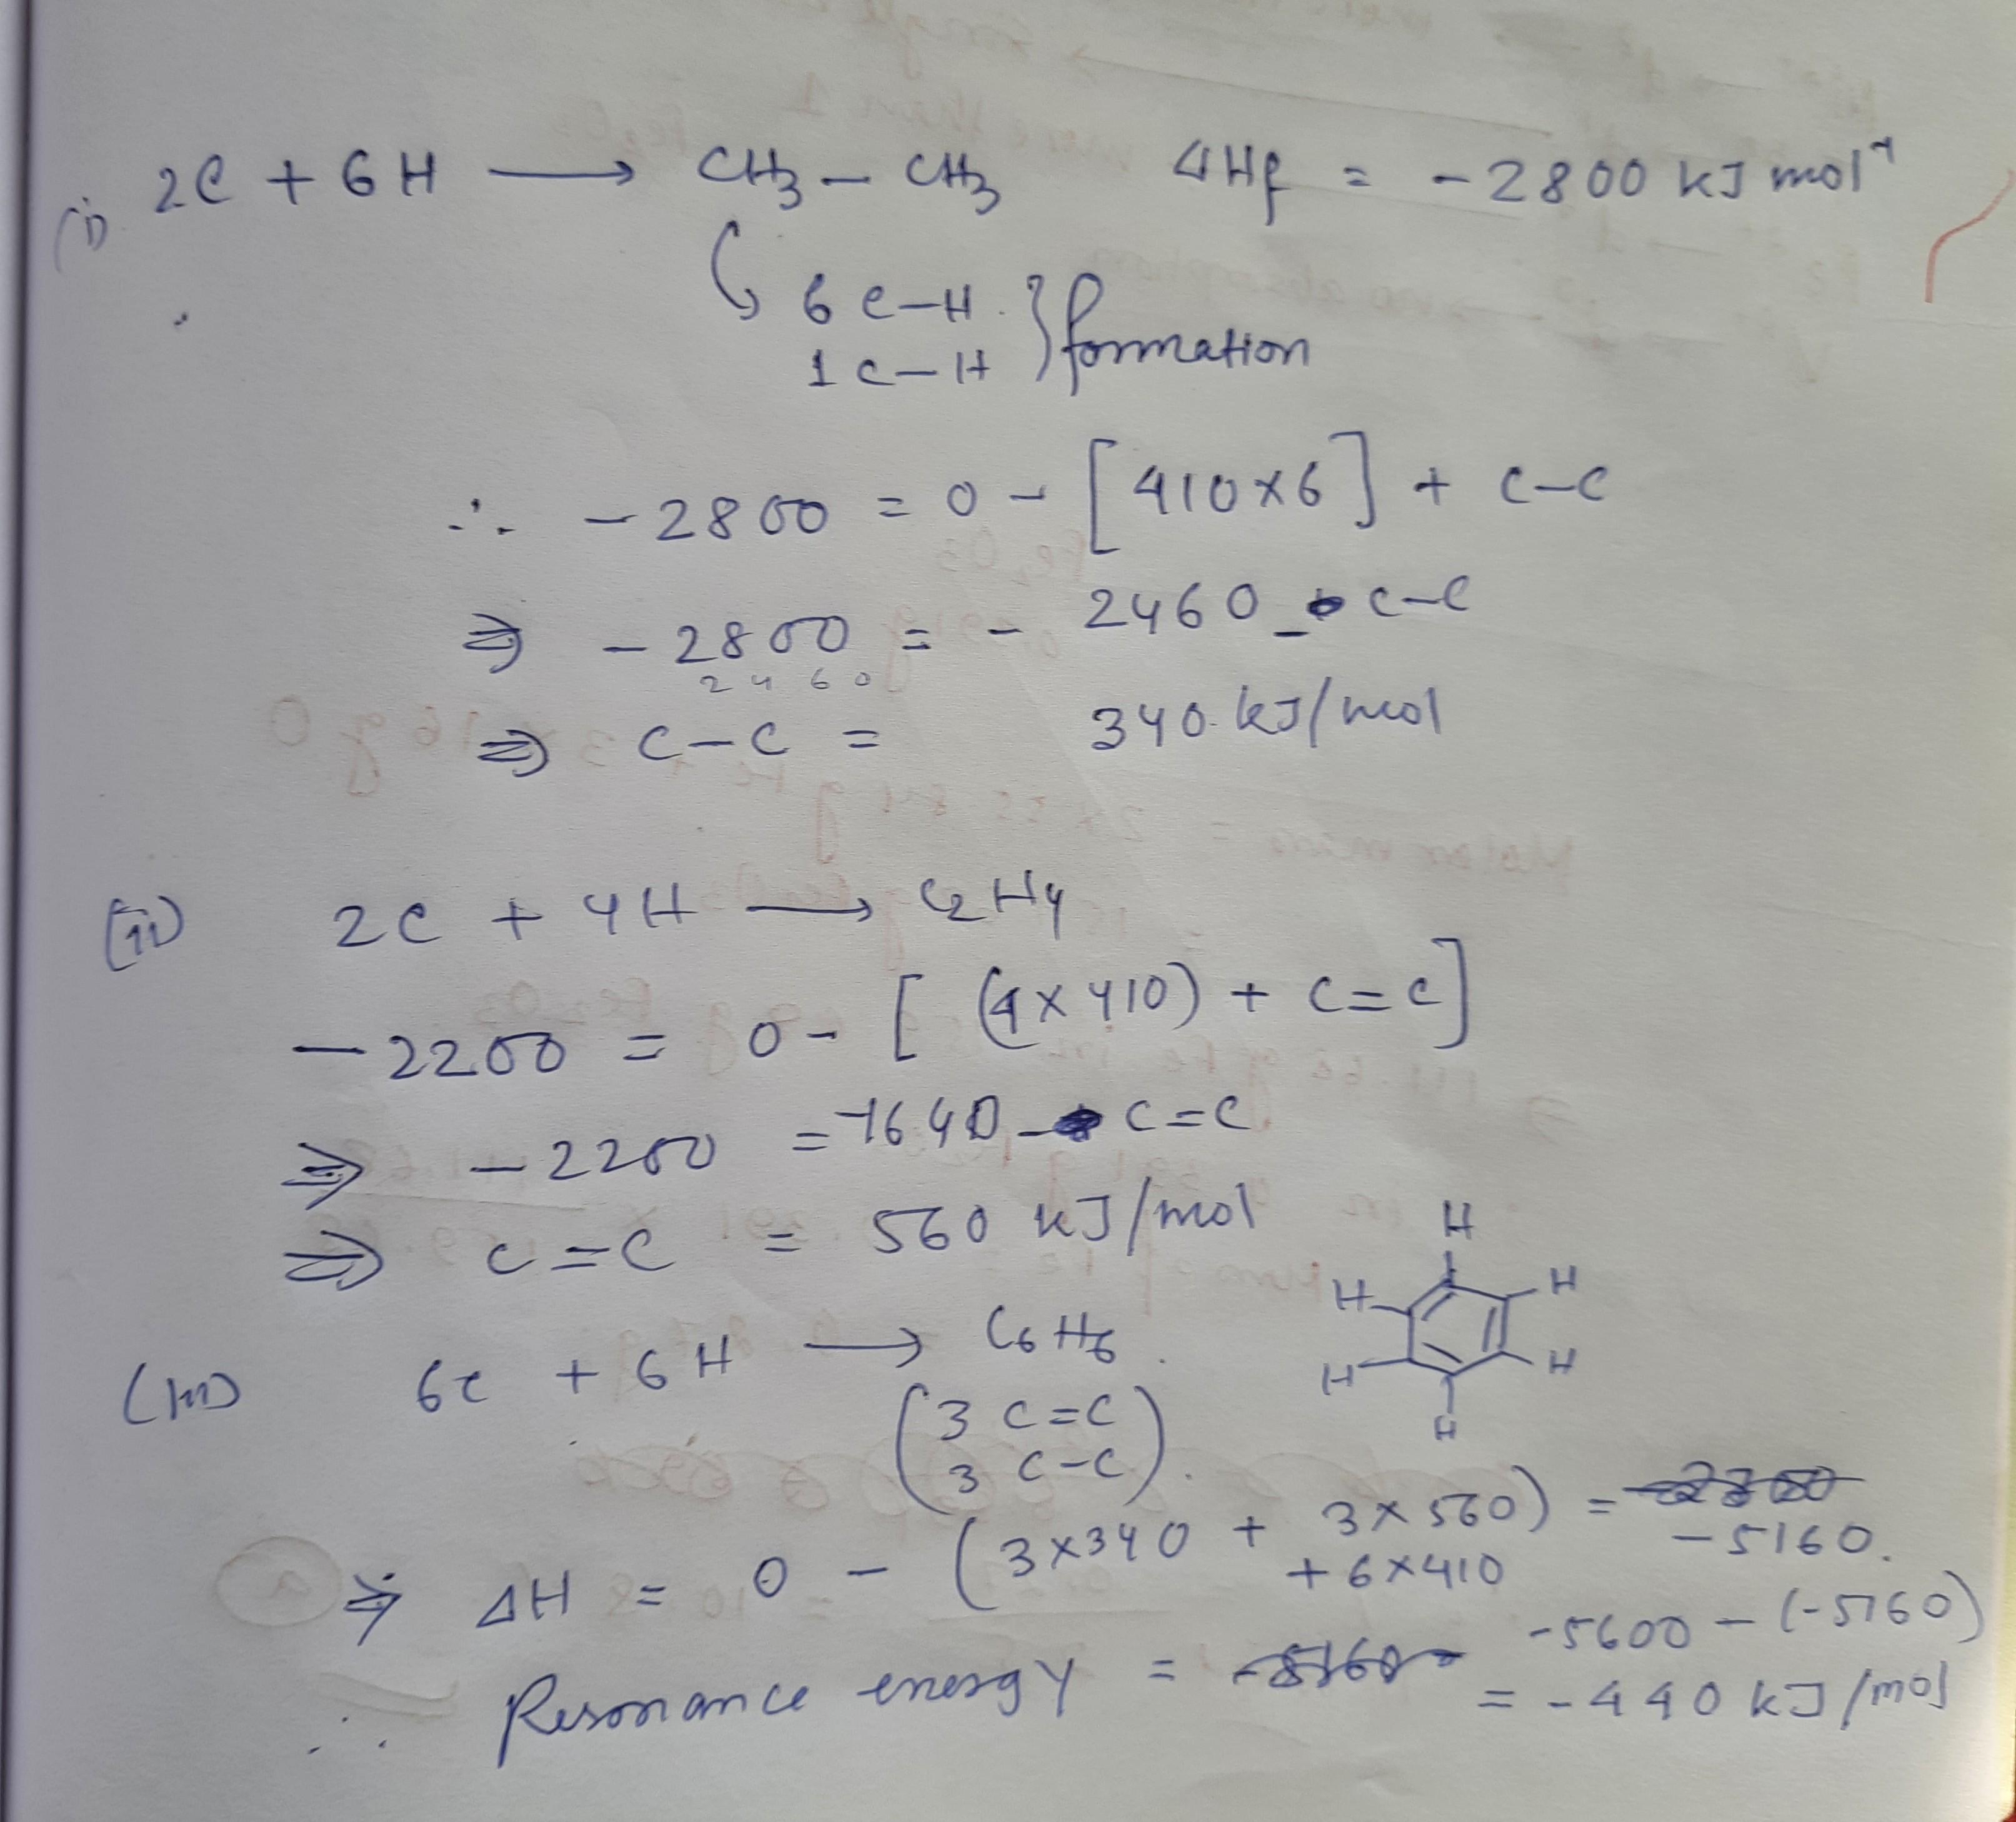 (i) 2C + 6H ⟶ CH₃ – CH₃ ΔHf = - 2800 kJ mol⁻¹
↳ 6 C–H } formation
1 C–H
∴ - 2800 = 0 - [410×6] + C–C
⇒ - 2800 = - 2460 - C–C
2460
⇒ C–C = 340 kJ/mol
(ii) 2C + 4H ⟶ C₂H₄
- 2200 = 0 - [(4×410) + C=C]
⇒ - 2200 = -1640 - C=C
⇒ C=C = 560 kJ/mol
(iii) 6C + 6H ⟶ C₆H₆
H
H H
H H
H
(3 C=C
3 C–C)
⇒ ΔH = 0 - (3×340 + 3×560) =
+ 6×410 - 5160.
∴ Resonance energy = -5600 - (-5160)
= -440 kJ/mol